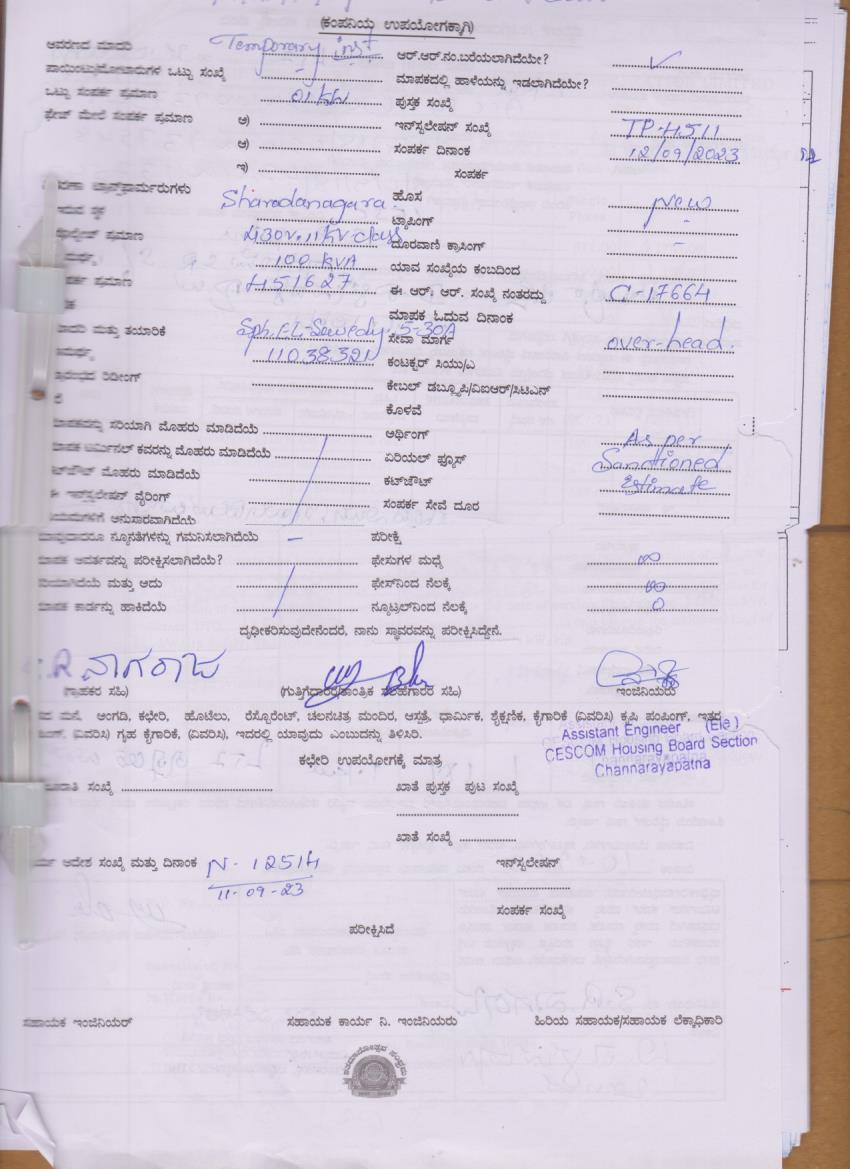 (ಕಂಪನಿಯ ಉಪಯೋಗಕ್ಕಾಗಿ)
ಆವರಣದ ಮಾದರಿ Temporary inst ಆರ್.ಆರ್.ನಂ.ಬರೆಯಲಾಗಿದೆಯೇ? ✓
ಪಾಯಿಂಟು/ಮೋಟಾರುಗಳ ಒಟ್ಟು ಸಂಖ್ಯೆ - ಮಾಪಕದಲ್ಲಿ ಹಾಳೆಯನ್ನು ಇಡಲಾಗಿದೆಯೇ?
ಒಟ್ಟು ಸಂಪರ್ಕ ಪ್ರಮಾಣ 01 KW ಪುಸ್ತಕ ಸಂಖ್ಯೆ
ಫೇಜ್ ಮೇಲೆ ಸಂಪರ್ಕ ಪ್ರಮಾಣ ಅ) ಇನ್‌ಸ್ಟಲೇಷನ್ ಸಂಖ್ಯೆ TP-4511
ಆ) ಸಂಪರ್ಕ ದಿನಾಂಕ 12/09/2023
ಇ) ಸಂಪರ್ಕ
ಟ್ರಾನ್ಸ್‌ಫಾರ್ಮರುಗಳು Sharadanagara. ಹೊಸ New
ಇರುವ ಸ್ಥಳ ಟ್ಯಾಪಿಂಗ್ -
ವೋಲ್ಟೇಜ್ ಪ್ರಮಾಣ 430v.11kv class ದೂರವಾಣಿ ಕ್ರಾಸಿಂಗ್ -
100 kVA ಯಾವ ಸಂಖ್ಯೆಯ ಕಂಬದಿಂದ
ಪ್ರಮಾಣ 451627 ಈ ಆರ್. ಆರ್. ಸಂಖ್ಯೆ ನಂತರದ್ದು C-17664
ಮಾಪಕ ಓದುವ ದಿನಾಂಕ
ಮತ್ತು ತಯಾರಿಕೆ Sph.EL-Sewedy. 5-30A ಸೇವಾ ಮಾರ್ಗ over-head.
11038321 ಕಂಟಕ್ಟರ್ ಸಿಯು/ಎ
ರೀಡಿಂಗ್ ಕೇಬಲ್ ಡಬ್ಲ್ಯೂಪಿ/ವಿಐಆರ್/ಸಿಟಿಎನ್
ಕೊಳವೆ
ಮಾಪಕವನ್ನು ಸರಿಯಾಗಿ ಮೊಹರು ಮಾಡಿದೆಯೆ ಆರ್ಥಿಂಗ್ As per
ಮಾಪಕ ಟರ್ಮಿನಲ್ ಕವರನ್ನು ಮೊಹರು ಮಾಡಿದೆಯೆ ಏರಿಯಲ್ ಫ್ಯೂಸ್ Sanctioned
ಕಟ್‌ಔಟ್ ಮೊಹರು ಮಾಡಿದೆಯೆ ಕಟ್‌ಔಟ್ Estimate
ಈ ಇನ್‌ಸ್ಟಲೇಷನ್ ವೈರಿಂಗ್ ಸಂಪರ್ಕ ಸೇವೆ ದೂರ
ನಿಯಮಗಳಿಗೆ ಅನುಸಾರವಾಗಿದೆಯೆ
ಯಾವುದಾದರೂ ನ್ಯೂನತೆಗಳನ್ನು ಗಮನಿಸಲಾಗಿದೆಯೆ - ಪರೀಕ್ಷೆ
ಮಾಪಕ ಆವರ್ತವನ್ನು ಪರೀಕ್ಷಿಸಲಾಗಿದೆಯೆ? ಫೇಸುಗಳ ಮಧ್ಯೆ ∞
ಸರಿಯಾಗಿದೆಯೆ ಮತ್ತು ಅದು ಫೇಸ್‌ನಿಂದ ನೆಲಕ್ಕೆ ∞
ಮಾಪಕ ಕಾರ್ಡನ್ನು ಹಾಕಿದೆಯೆ ನ್ಯೂಟ್ರಲ್‌ನಿಂದ ನೆಲಕ್ಕೆ 0
ದೃಢೀಕರಿಸುವುದೇನೆಂದರೆ, ನಾನು ಸ್ಥಾವರವನ್ನು ಪರೀಕ್ಷಿಸಿದ್ದೇನೆ.
ನಾಗರಾಜ
(ಗ್ರಾಹಕರ ಸಹಿ) (ಗುತ್ತಿಗೆದಾರರ/ತಾಂತ್ರಿಕ ಸಲಹಗಾರರ ಸಹಿ) ಇಂಜಿನಿಯರು
ಮನೆ, ಅಂಗಡಿ, ಕಛೇರಿ, ಹೋಟೆಲು, ರೆಸ್ಟೋರೆಂಟ್, ಚಲನಚಿತ್ರ ಮಂದಿರ, ಆಸ್ಪತ್ರೆ, ಧಾರ್ಮಿಕ, ಶೈಕ್ಷಣಿಕ, ಕೈಗಾರಿಕೆ (ವಿವರಿಸಿ) ಕೃಷಿ ಪಂಪಿಂಗ್, ಇತರ
(ವಿವರಿಸಿ) ಗೃಹ ಕೈಗಾರಿಕೆ, (ವಿವರಿಸಿ), ಇದರಲ್ಲಿ ಯಾವುದು ಎಂಬುದನ್ನು ತಿಳಿಸಿರಿ.
Assistant Engineer (Ele)
CESCOM Housing Board Section
Channarayapatna
ಕಛೇರಿ ಉಪಯೋಗಕ್ಕೆ ಮಾತ್ರ
ಸಂಖ್ಯೆ ಖಾತೆ ಪುಸ್ತಕ ಪುಟ ಸಂಖ್ಯೆ
ಖಾತೆ ಸಂಖ್ಯೆ
ಆದೇಶ ಸಂಖ್ಯೆ ಮತ್ತು ದಿನಾಂಕ N-12514 ಇನ್‌ಸ್ಟಲೇಷನ್
11-09-23
ಸಂಪರ್ಕ ಸಂಖ್ಯೆ
ಪರೀಕ್ಷಿಸಿದೆ
ಸಹಾಯಕ ಇಂಜಿನಿಯರ್ ಸಹಾಯಕ ಕಾರ್ಯ ನಿ. ಇಂಜಿನಿಯರು ಹಿರಿಯ ಸಹಾಯಕ/ಸಹಾಯಕ ಲೆಕ್ಕಾಧಿಕಾರಿ